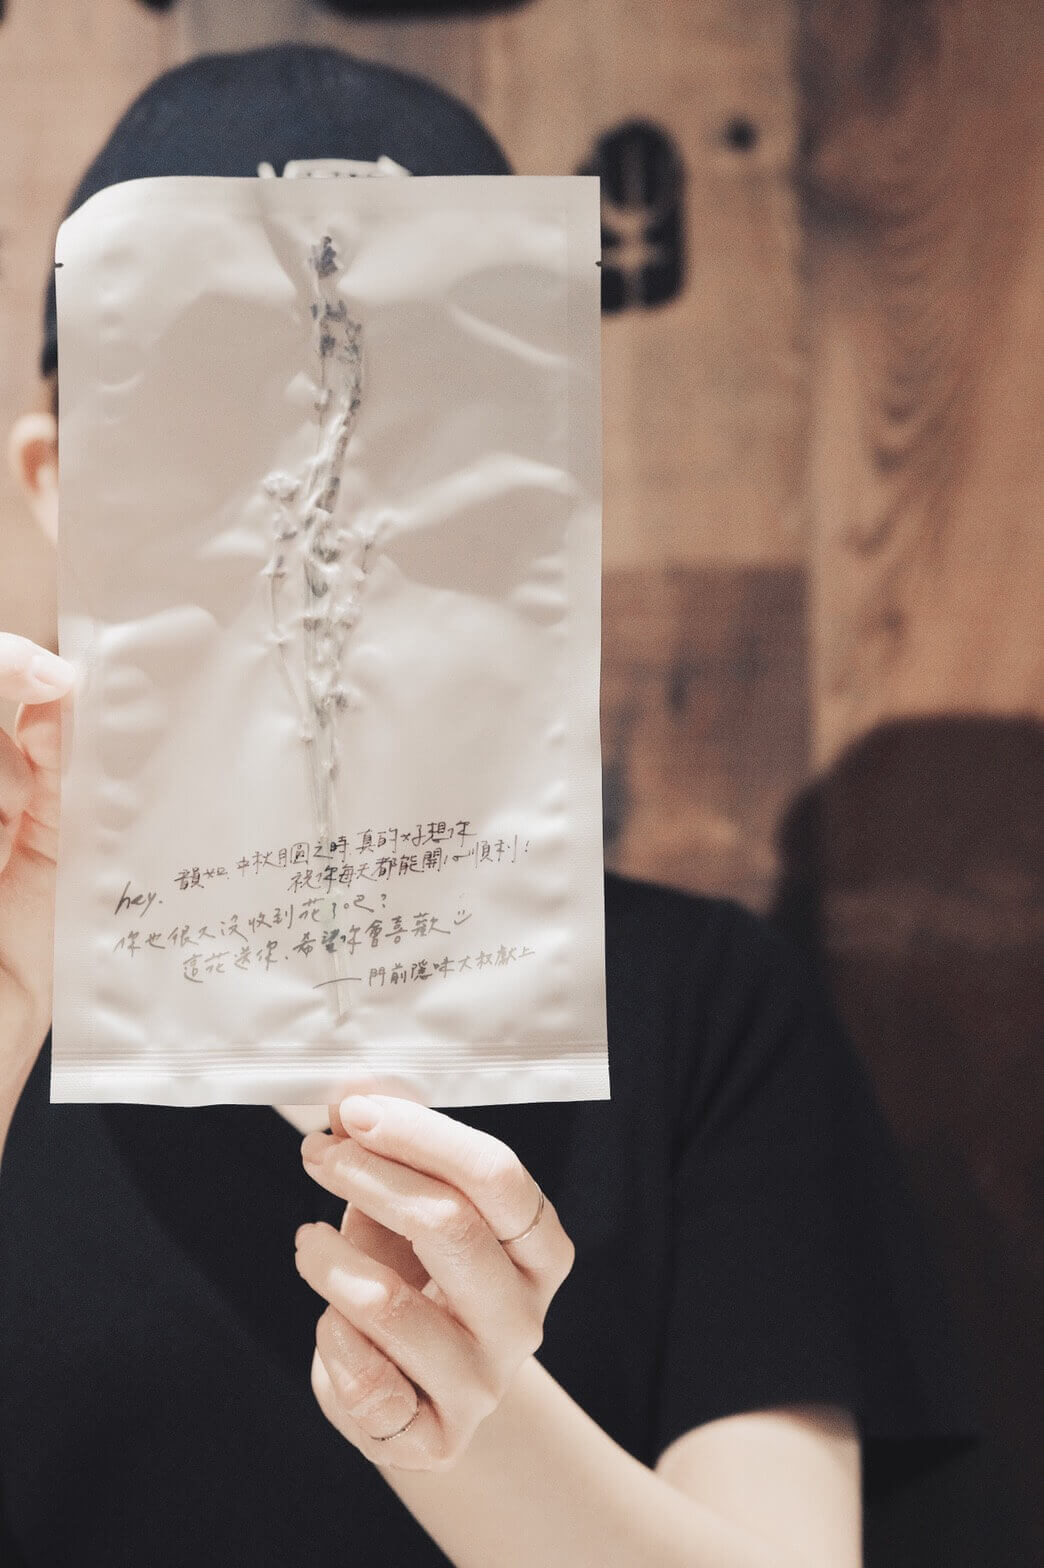 hey. 韻如 中秋月圓之時 真的好想你
祝你每天都能開心順利!
你也很久沒收到花了吧?
這花送你、希望你會喜歡
——門前隱味大叔獻上